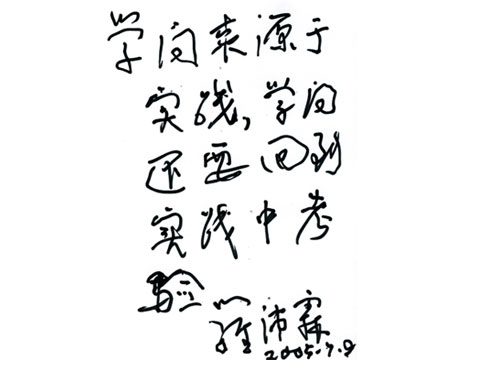 学问来源于
实践,学问
还要回到
实践中考
验
罗沛霖
2005.7.9